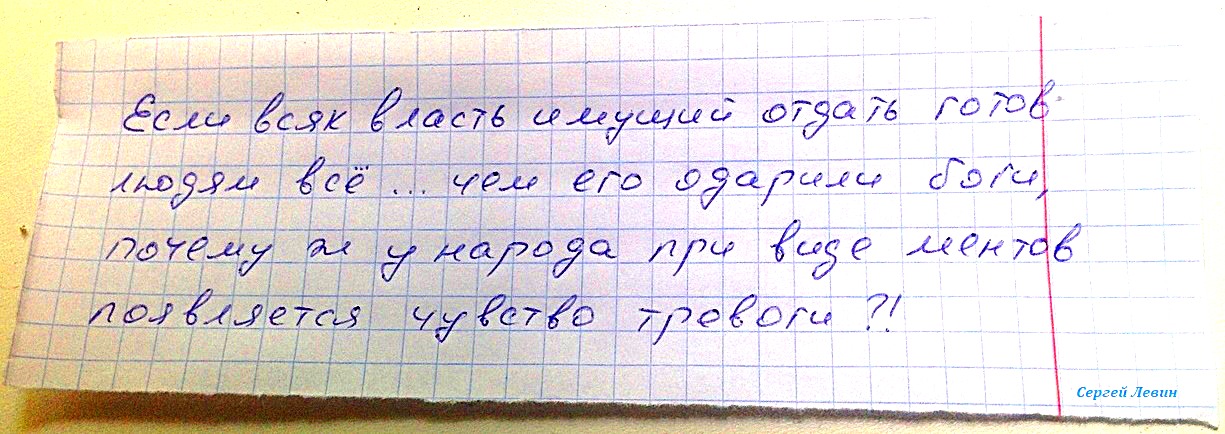 Если всяк власть имущий отдать готов
людям всё ... чем его одарили боги,
почему ж у народа при виде ментов
появляется чувство тревоги ?!
Сергей Левин